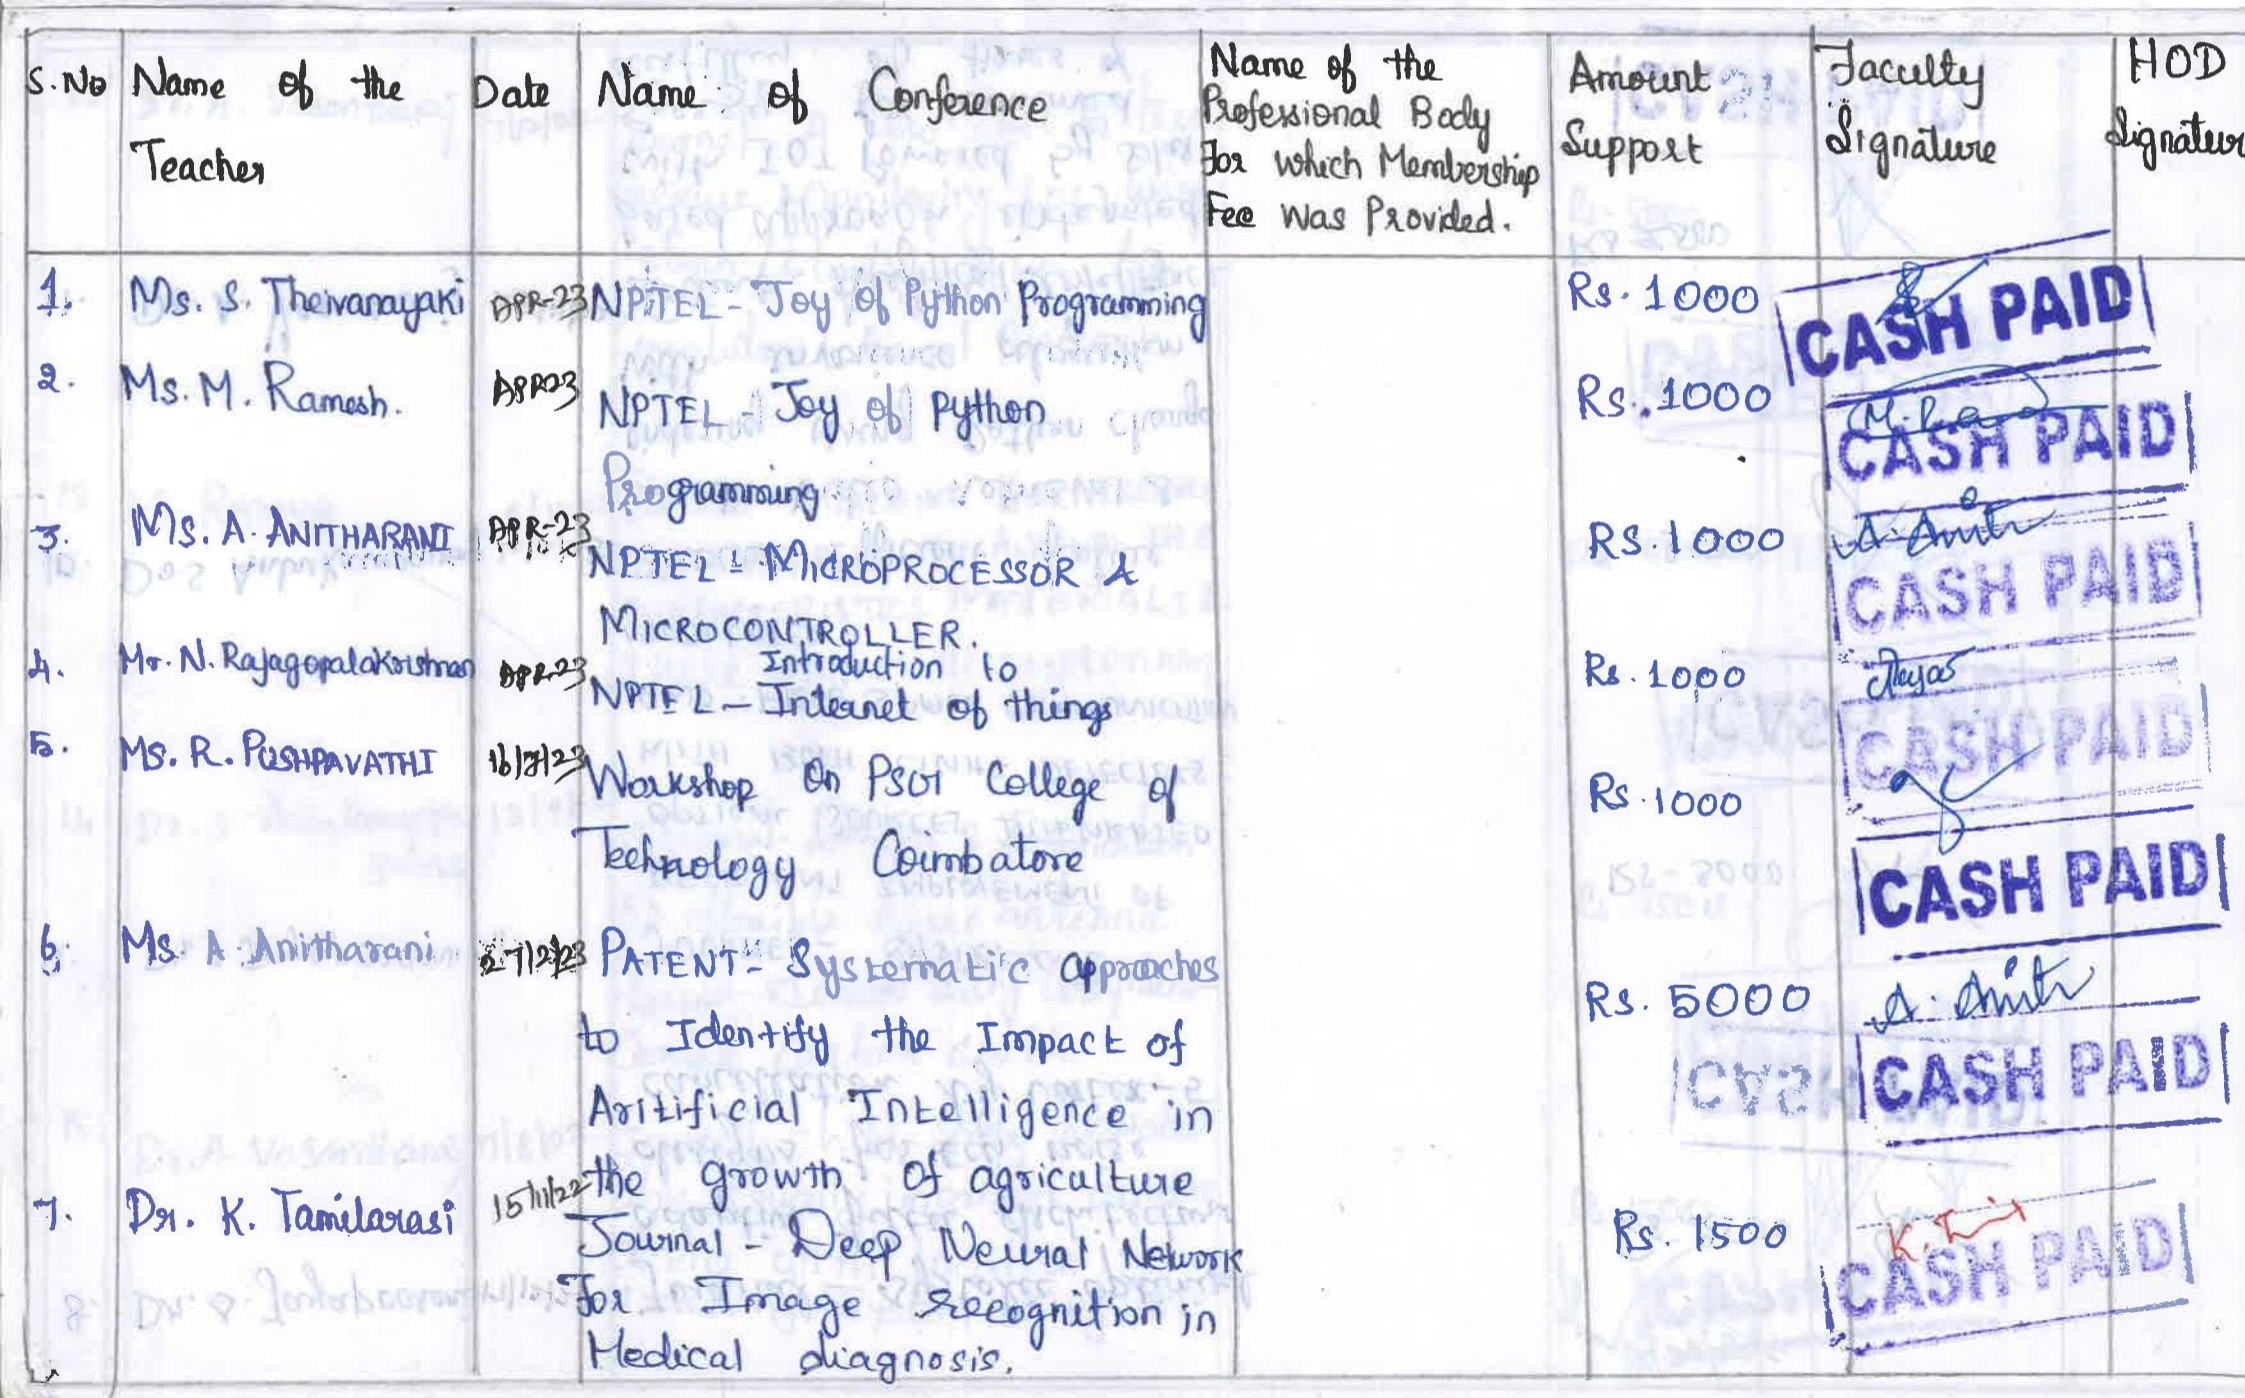 S.No Name of the Teacher Date Name of Conference Name of the Professional Body For which Membership Fee Was Provided. Amount Support Faculty Signature HOD Signatur
1. Ms. S. Theivanayaki APR-23 NPTEL - Joy of Python Programming Rs. 1000
CASH PAID
2. Ms. M. Ramesh. APR23 NPTEL - Joy of Python Rs. 1000
Programming
CASH PAID
3. Ms. A. ANITHARANI APR-23 NPTEL - MICROPROCESSOR & RS. 1000 A. Anit
MICROCONTROLLER.
CASH PAID
4. Mr. N. Rajagopalakrishnan APR-23 Introduction to
NPTEL - Internet of things Rs. 1000
CASH PAID
5. MS. R. PUSHPAVATHI Workshop On PSG College of Rs. 1000
Technology Coimbatore
CASH PAID
6. Ms. A Anitharani 27/2/23 PATENT - Systematic Approaches Rs. 5000 A. Anit
to Identify the Impact of
Aritificial Intelligence in
the growth of agriculture
CASH PAID
7. Dr. K. Tamilarasi 15/11/22 Journal - Deep Neural Network Rs. 1500
For Image recognition in
Medical diagnosis.
CASH PAID